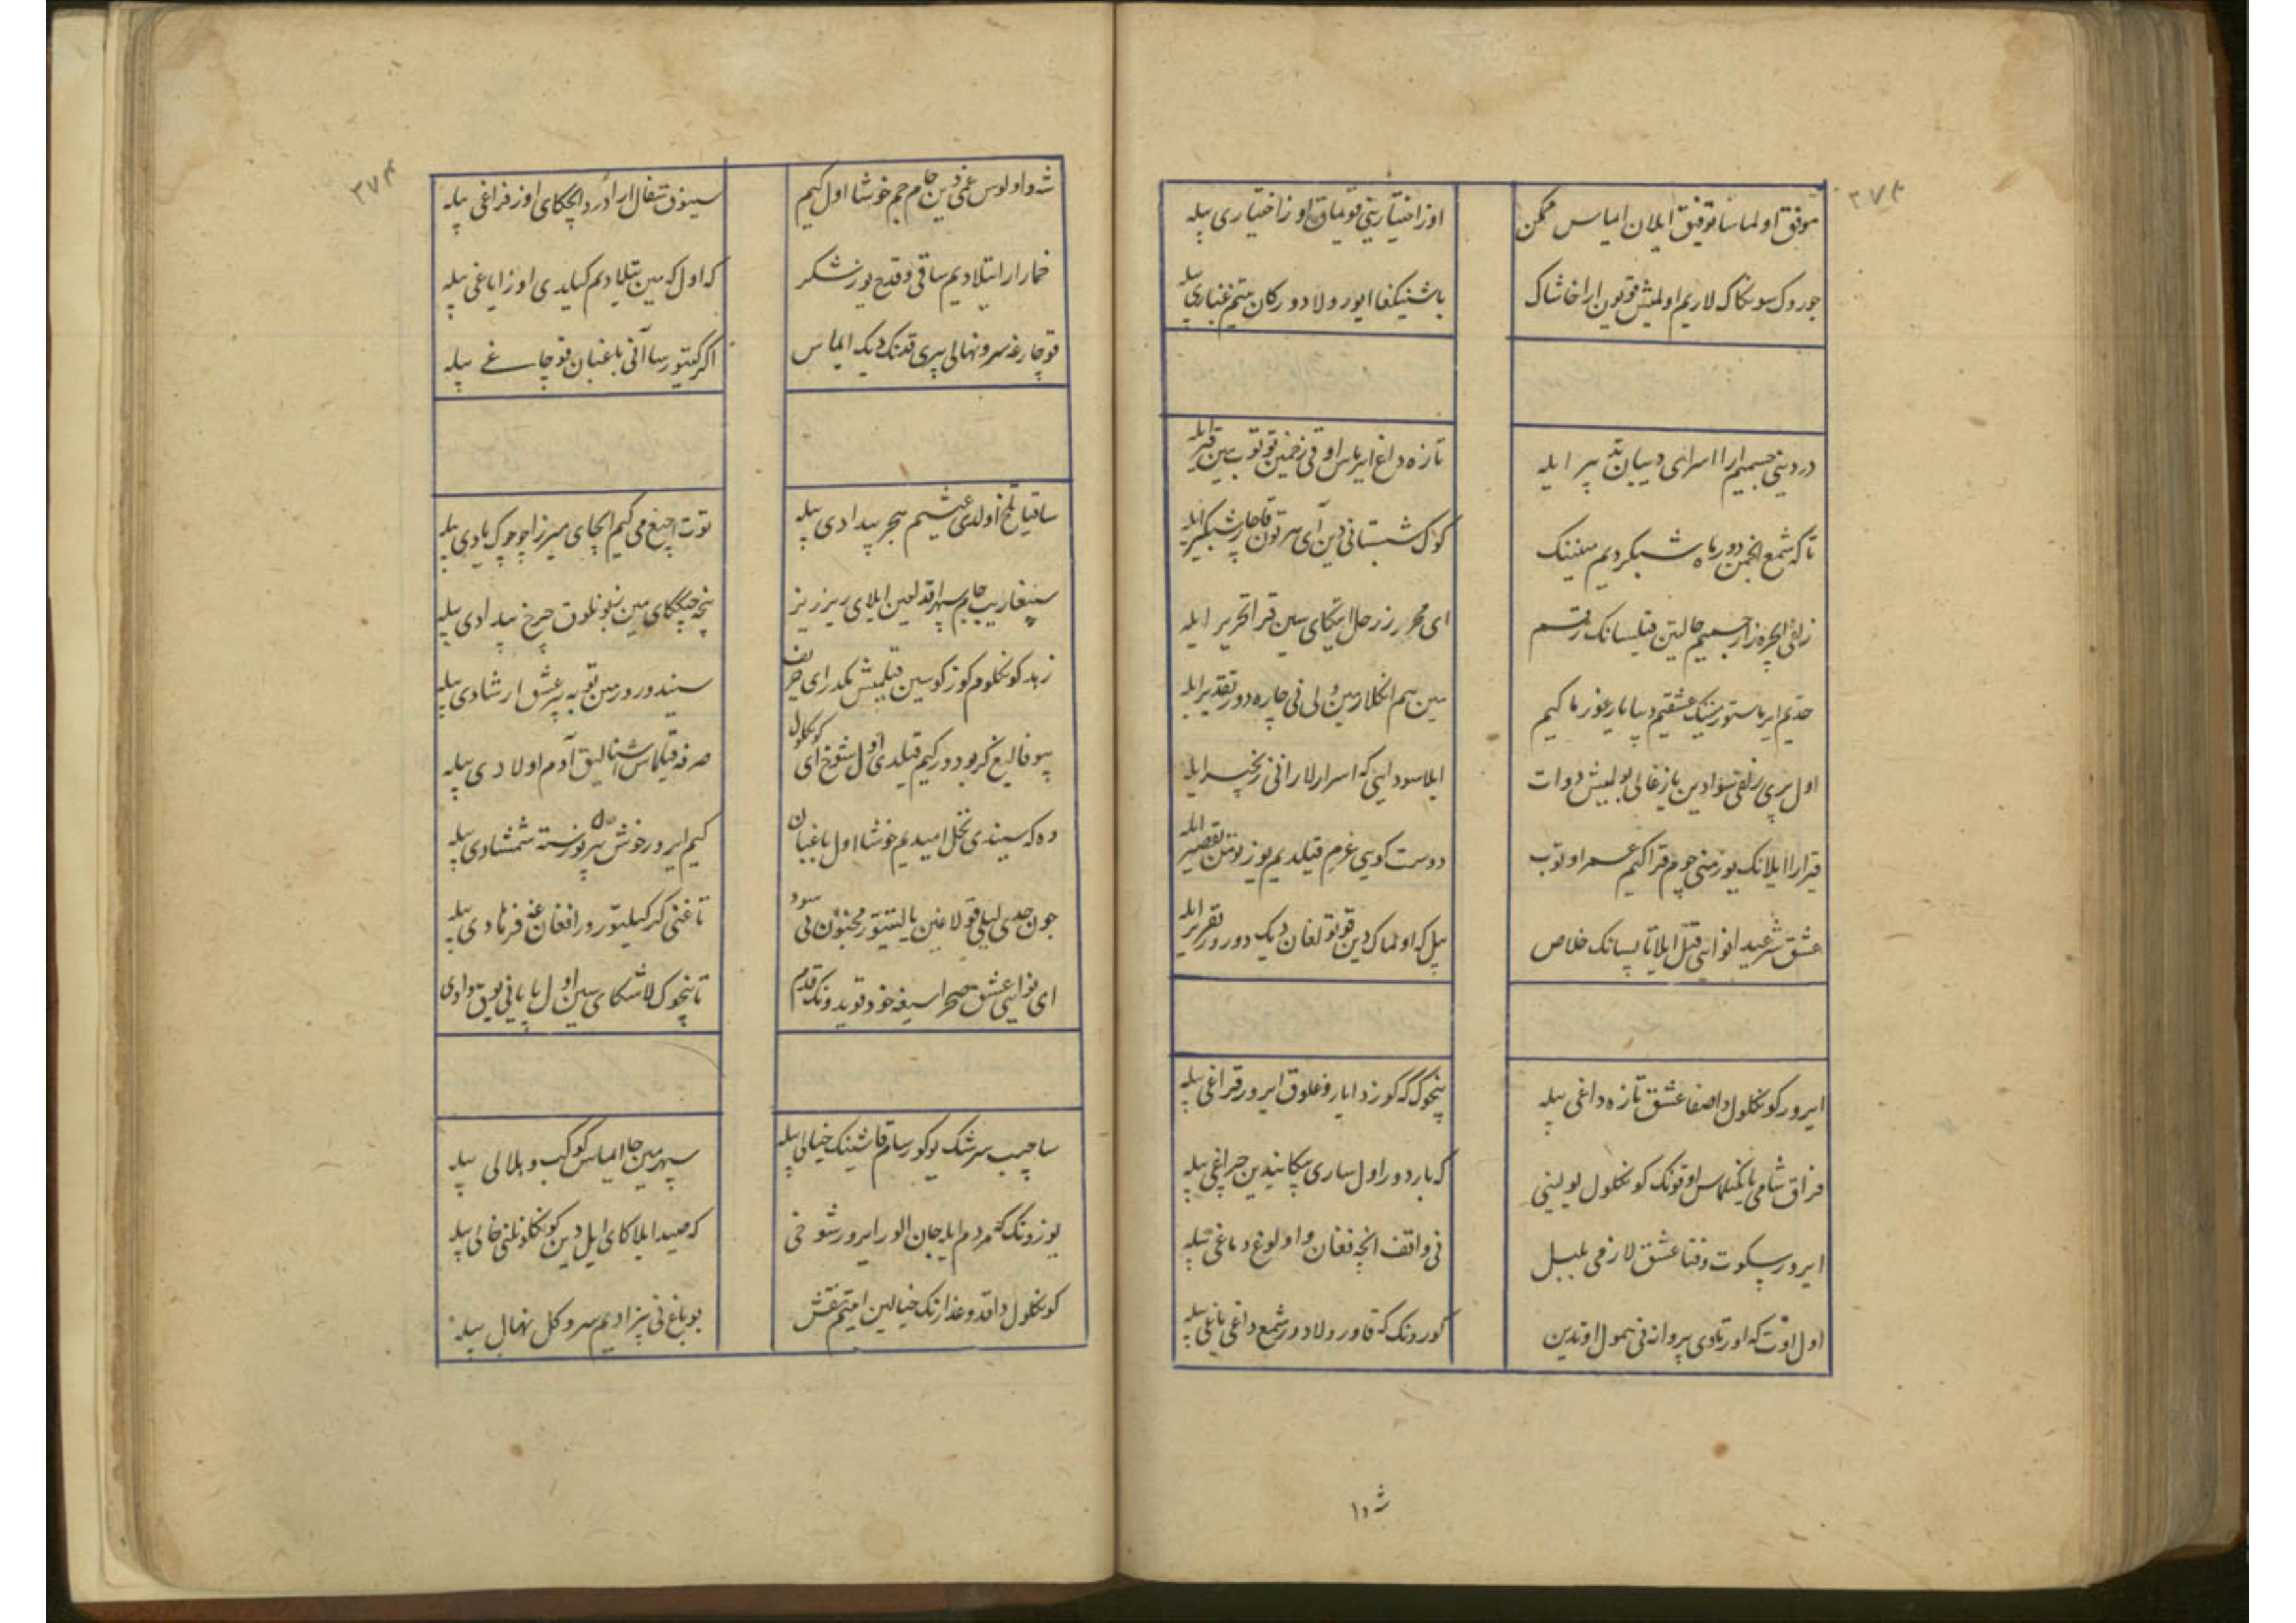 ۳۷۴
موفق اولماسا توفیق ایلان ایماس ممکن
اوز اختیارینی قویماق اوز اختیاری بیله
سونکاک لاریم اولمیش قویون ارا خاشاک
باشنیکغا ایورولادورکان یتیم غباری بیله
دردینی جسمیم ارا اسرای دیبان تدبیر ایله
تازه داغ ایرماس اوقی زخمین توتوب مین قیر ایله
تا که شمع انجمن دور ماه شبکردیم مینینک
کوک شبستانی دین آی هر تون قاچار شبکیر ایله
زلفی هجریده زار جسمیم حالتین قیلسانک رقم
ای محرر زر حل ایتکای سین قرا تحریر ایله
حدیم ایرماستور مینینک عشقیم دیبا یارغوزما کیم
مین هم انکلارمین ولی نی چاره دور تقدیر ایله
اول پری زلفی سوادین یازغالی بولمیش دوات
ایلا سودایی که اسرارلار انی زنجیر ایله
قرا ایلانک یوزمنی چوم قرا کیم عمر اوتوب
دوست کویی عزم قیلدیم یوز تومن تقصیر ایله
عشق شرعیدا نوایی قتل ایلا تاپسانک خلاص
بیل که اولماک دین قوتولغان دیک دورور تقریر ایله
ایرور کونکلول دا صفا عشق تازه داغی بیله
نیچوک که کوزدا یاروغلوق ایرور قراغی بیله
فراق شامی یانکیلماس اوقونک کونکلول یولینی
که باردور اول ساری پیکانیدین چراغی بیله
ایرور سکوت و فنا عشق لازمی بلبل
نی واقف انچه فغان و اولوغ دماغی بیله
اول اوت که اورتادی پروانه نی همول اوتدین
کورونک که قاورولادور شمع داغی یاغی بیله
شه و ا
۳۷۴
شه و اولوس غمی دین جام جم خوشا اول کیم
سینوق سفال ارا درد ایچکای اوز فراغی بیله
خمار ارا تیلادیم ساقی و قدح یوز شکر
که اول که مین تیلادیم کیلدی اوز ایاغی بیله
قوچارغه سرو نهالی پری قدنک دیک ایماس
اکر کیتورسا آنی باغبان قوچاغی بیله
ساقیا تلخ اولدی عیشیم هجر بیدادی بیله
توت اچیغ می کیم ایچای میرزا چوچوک یادی بیله
سینغاریب جام سپهر اقداحین ایلای ریز ریز
نیچه چیککای مین زبونلوق چرخ بیدادی بیله
زهد کونکلوم کوزکوسین قیلمیش مکدر ای حریف
سیندورورمین توبه پیر عشق ارشادی بیله
بیوفالیغ کوب دور کیم قیلدی اول شوخ ای کونکول
صرفه قیلماس اشنالیق آدم اولادی بیله
وه که سیندی نخل امیدیم خوشا اول باغبان
کیم ایرور خوش دل هر نورسته شمشادی بیله
چون حدی لیلی قولاغین یالیتیتور مجنون نی سود
تاغنی کر کیلتورور افغان غه فرهادی بیله
ای نوایی عشق صحراسیغه خود قویدونک قدم
تا نیچوک لاشکای سین اول بی پایانی یوق وادی
ساچیب سرشک یوکورسام قاشینک خیالی بیله
سپهر مینچا ایماس کوکب و هلالی بیله
یوزونک که مردم ایله جان الور ایرور شوخی
که صید ایلاکای ایل دین کونکلونی خالی بیله
کونکلول دا قد و عذارنک خیالین ایتتیم نقش
بو باغ نی بیزادیم سرو کل نهال بیله